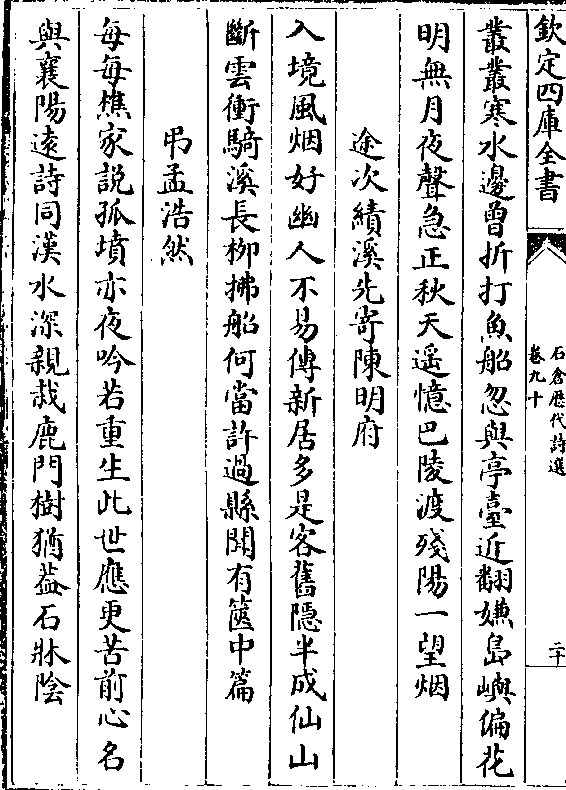 欽定四庫全書
石倉歷代詩選
卷九十
二十
叢叢寒水邊曾折打魚船忽與亭臺近翻嫌島嶼偏花
明無月夜聲急正秋天遥憶巴陵渡殘陽一望烟
途次績溪先寄陳明府
入境風烟好幽人不易傳新居多是客舊隠半成仙山
斷雲衝騎溪長栁拂船何當許過縣聞有篋中篇
弔孟浩然
每每樵家説孤墳亦夜吟若重生此世應更苦前心名
與襄陽逺詩同漢水深親栽鹿門樹猶葢石牀陰